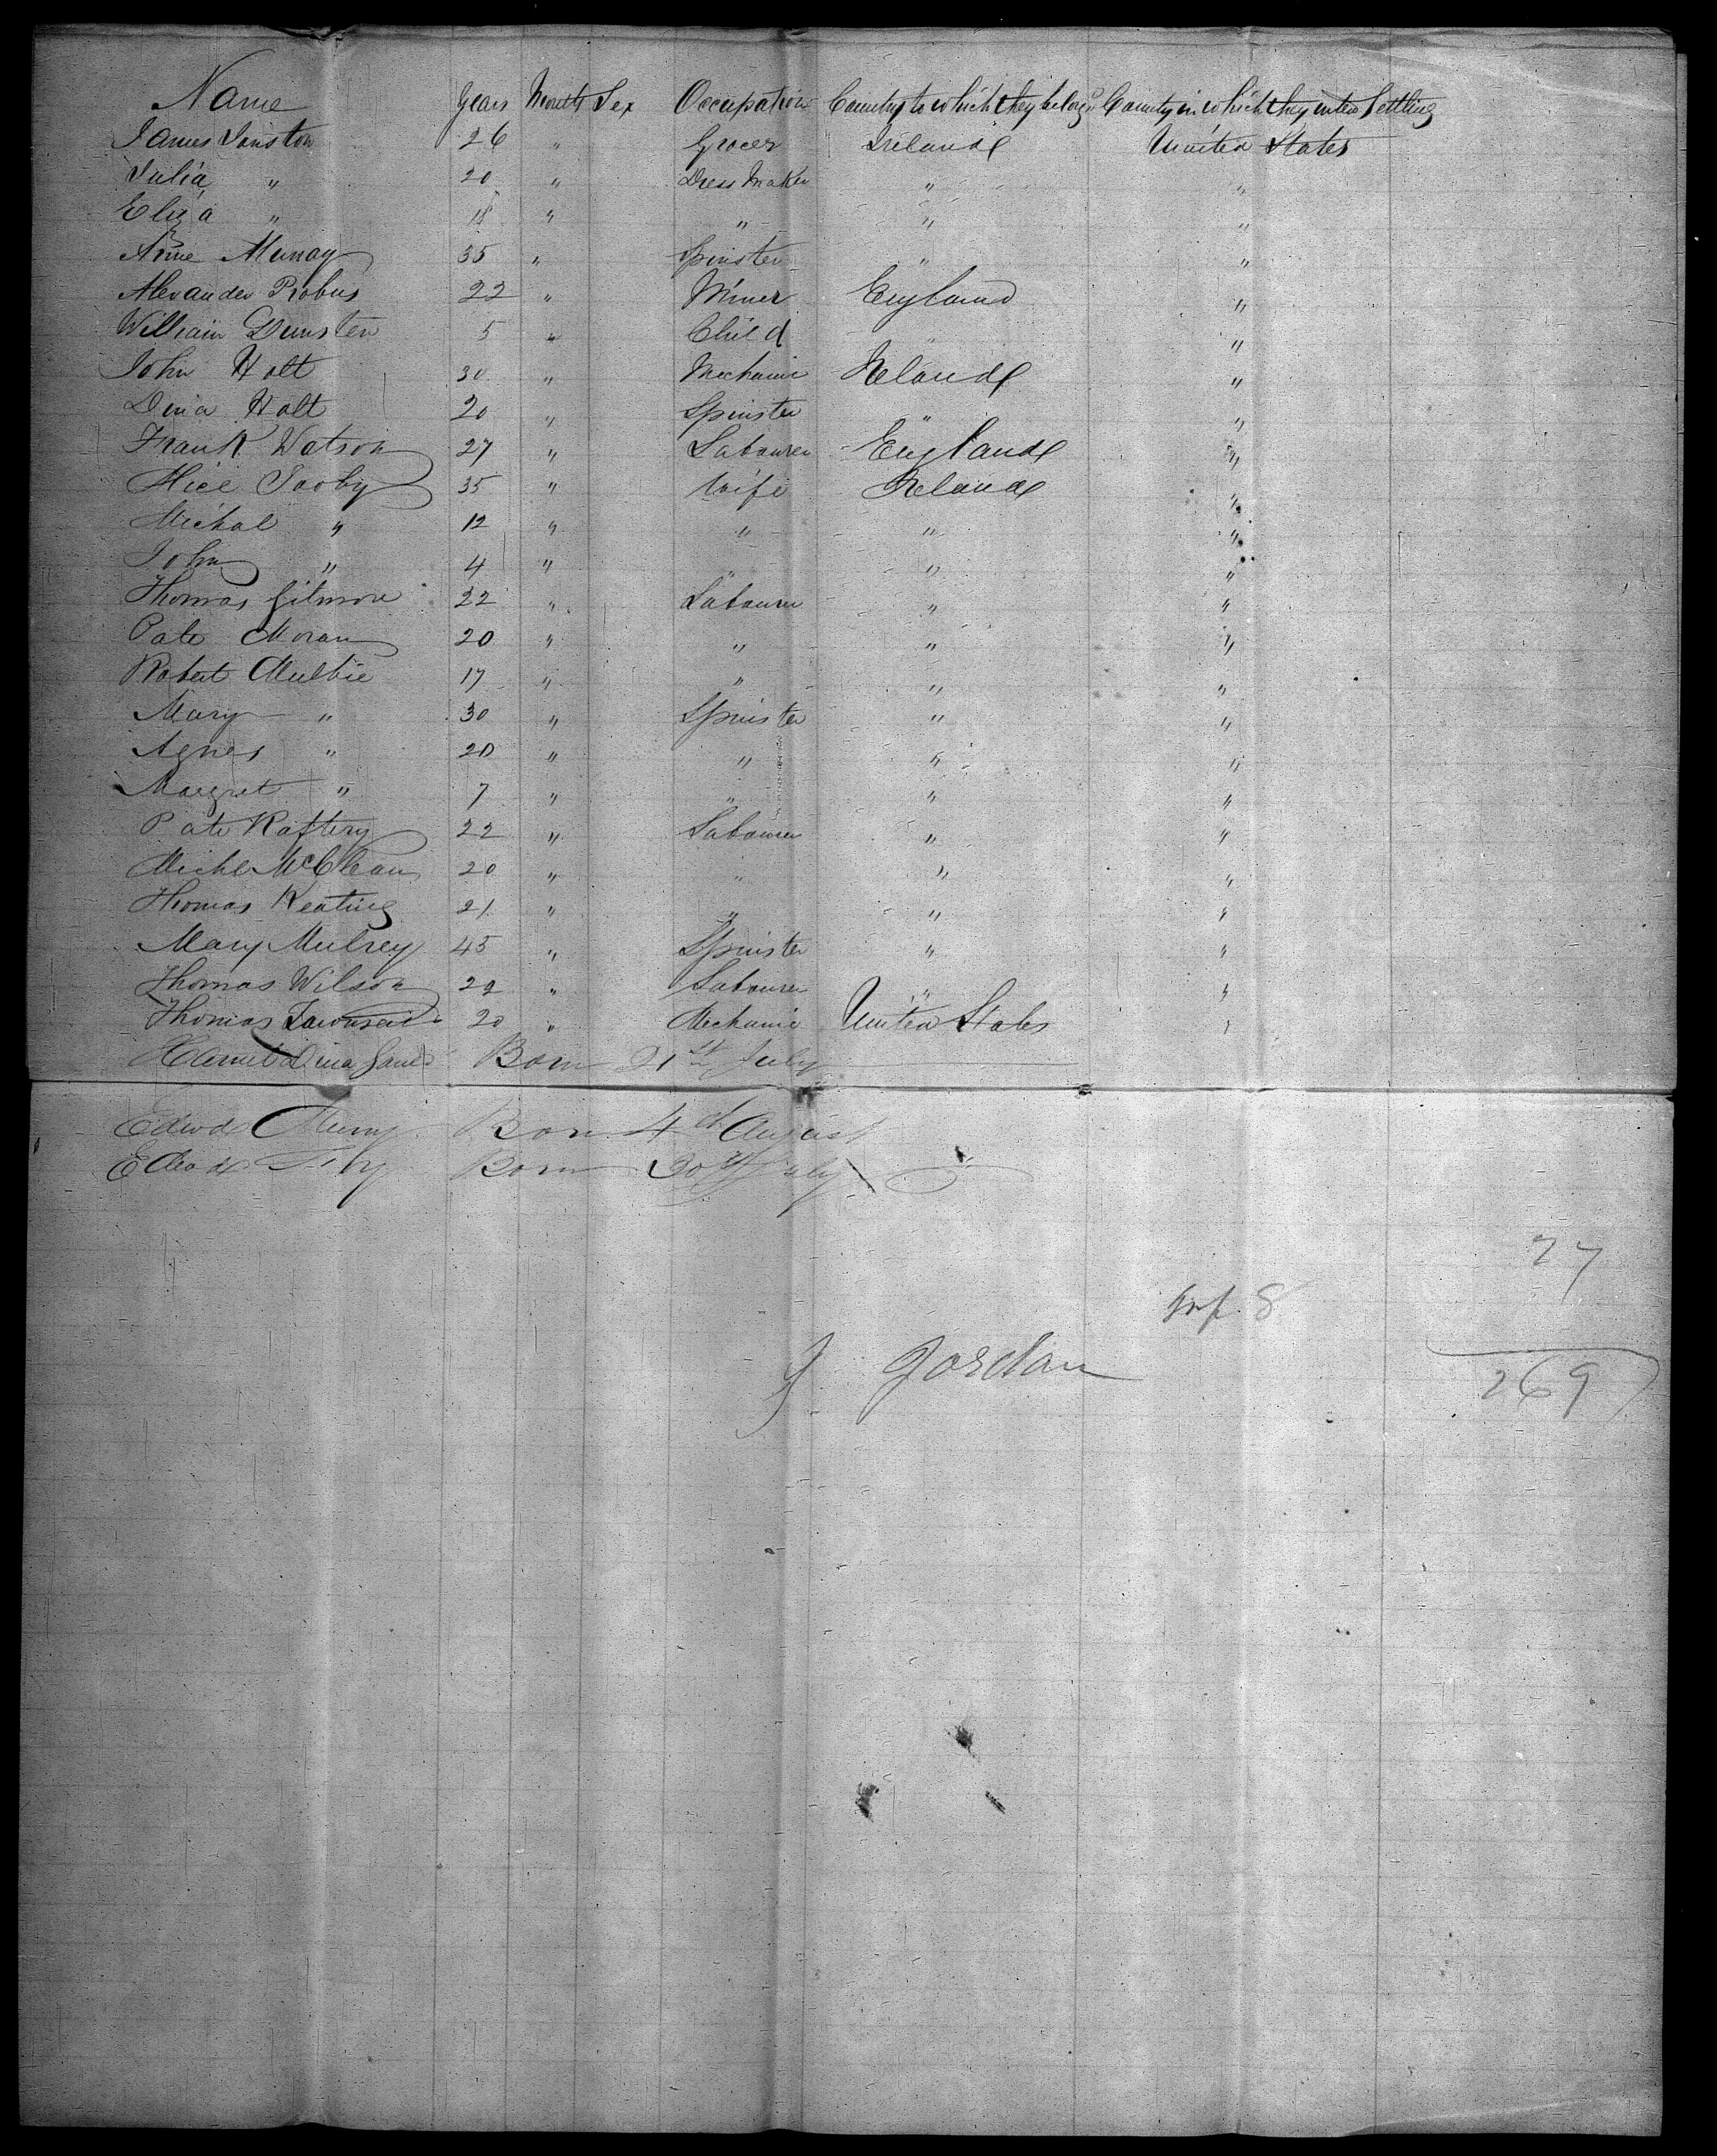 Name Years Months Sex Occupation Country to which they belong Country in which they inten Settling
James Jonston 26 " Grocer Ireland United States
Julia " 20 " Dress Maker " "
Eliza " 18 " " " "
Anne Murray 35 " Spinster " "
Alexander Probus 22 " Miner England "
William Dunsten 5 " Child " "
John Holt 30 " Mechanic Ireland "
Dina Holt 20 " Spinster " "
Frank Watson 27 " Labourer England "
Alice 35 " Wife Ireland "
Michal " 12 " " " "
John " 4 " " " "
Thomas Gilmore 22 " Labourer " "
Pate Moran 20 " " " "
Robert 17 " " " "
Mary " 30 " Spinster " "
Agnes " 20 " " " "
Margret " 7 " " " "
Pate Raftery 22 " Labourer " "
Michl McClean 20 " " " "
Thomas Keating 21 " " " "
Mary Mulrey 45 " Spinster " "
Thomas Wilson 22 " Labourer " "
Thomas Townsend 20 " Mechanic United States "
Dina Born 21st July
Edwd Born 4 August
Born 30th July
27
Inf. 8
J Jordan
269